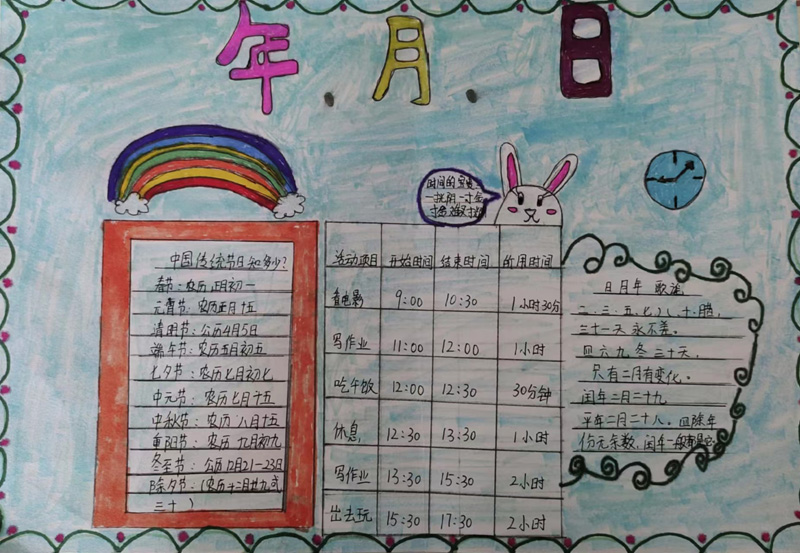 年.月.日
时间的宝贵
一寸光阴一寸金
中国传统节日知多少?
春节:农历正月初一
元宵节:农历正月十五
清明节:公历4月5日
端午节:农历五月初五
七夕节:农历七月初七
中元节:农历七月十五
中秋节:农历八月十五
重阳节:农历九月初九
冬至节:公历12月21-23日
除夕节:(农历十二月廿九或
三十)
活动项目 开始时间 结束时间 所用时间
看电影 9:00 10:30 1小时30分
写作业 11:00 12:00 1小时
吃午饭 12:00 12:30 30分钟
休息 12:30 13:30 1小时
写作业 13:30 15:30 2小时
出去玩 15:30 17:30 2小时
日月年 歌谣
一、三、五、七、八、十、腊,
三十一天永不差。
四六九冬三十天,
只有二月有变化。
闰年二月二十九
平年二月二十八。四除年
份无余数,闰年一般